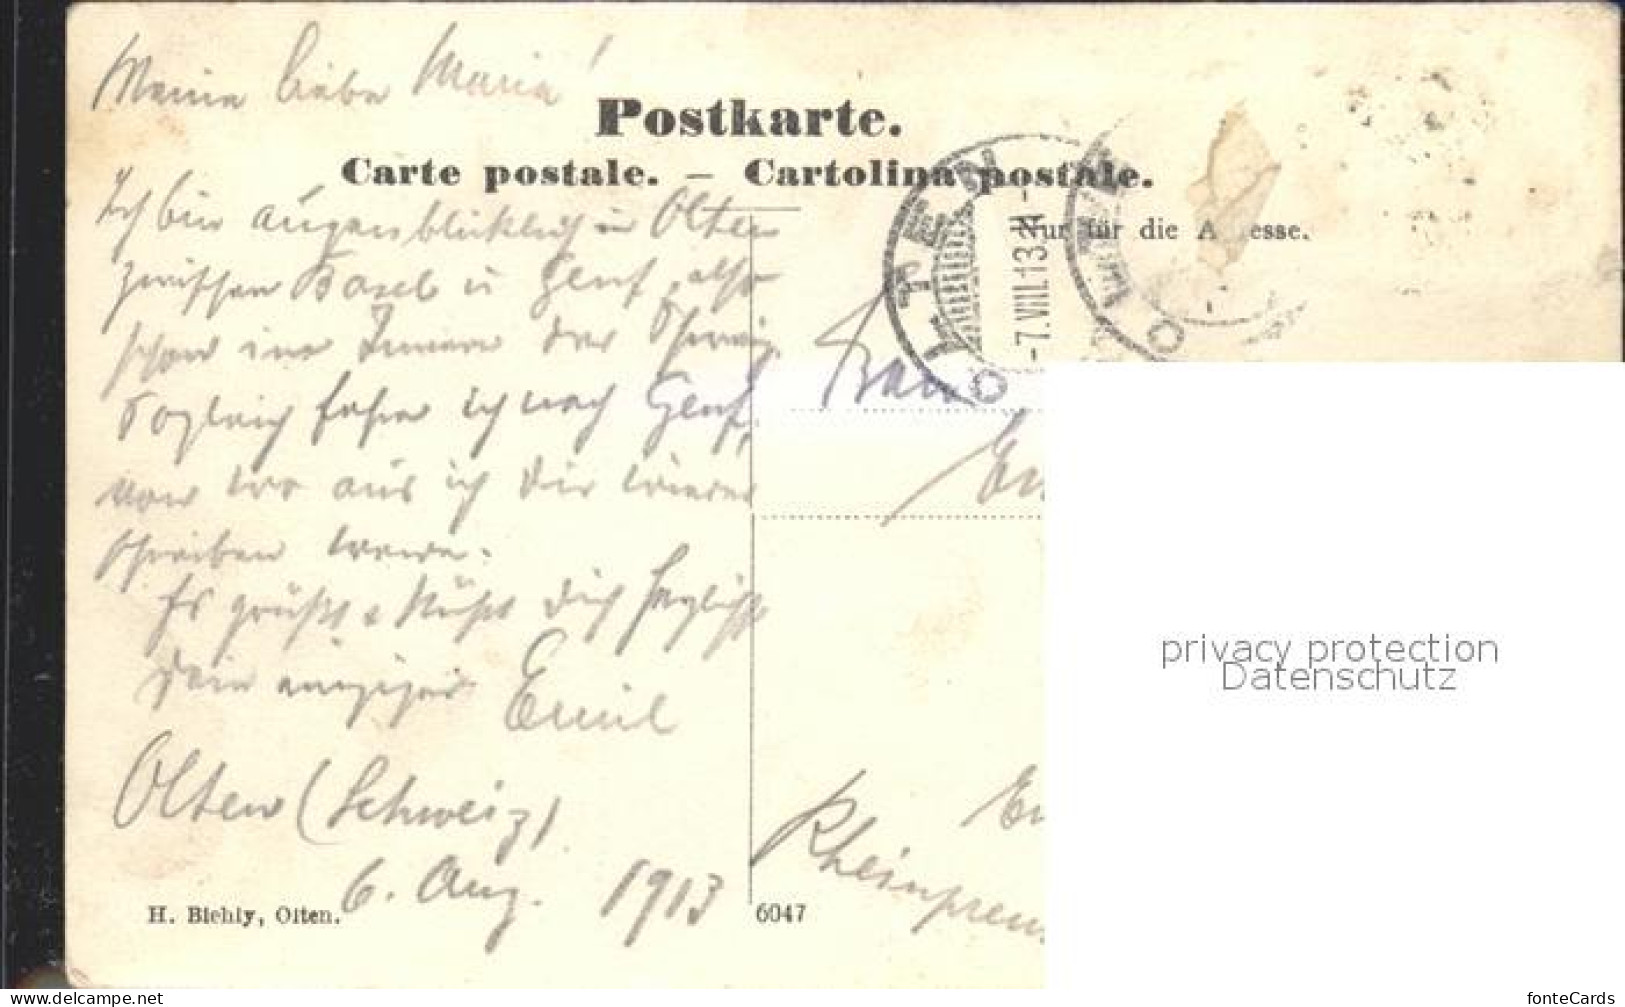 Meine liebe Maria!
Postkarte.
Carte postale. — Cartolina postale.
Nur für die A esse.
Ich bin augenblicklich in Olten
zwischen Basel u Genf, also
schon im Innern der Schweiz.
Sogleich fahre ich nach Genf,
von wo aus ich Dir wieder
schreiben werde.
Es grüßt & küßt Dich herzlichst
Dein einziger Emil
Olten (Schweiz)
6. Aug. 1913
OLTEN
-7.VIII.13.
OLTEN
Rheinpreu
H. Biehly, Olten.
6047
privacy protection
Datenschutz
https://www.delcampe.net
fonteCards